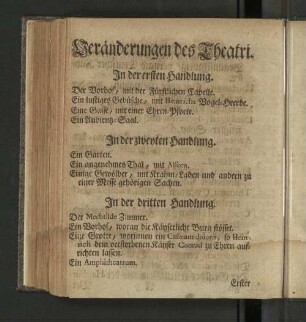 Veränderungen des Theatri.
In der ersten Handlung.
Der Vorhof, mit der Fürstlichen Capelle.
Ein lustiges Gebüsche, mit Heinrichs Vogel-Heerde.
Eine Gasse, mit einer Ehren-Pforte.
Ein Audientz-Saal.
In der zweyten Handlung.
Ein Garten.
Ein angenehmes Thal, mit Alleen.
Einige Gewölber, mit Krahm-Laden und andren zu
einer Messe gehörigen Sachen.
In der dritten Handlung.
Der Mechtilde Zimmer.
Ein Vorhof, woran die Käyserliche Burg stösset.
Eine Grotte, worinnen ein so Hein-
rich dem verstorbenen Käyser Conrad zu Ehren auf-
richten lassen.
Ein Amphitheatrum.
Erster